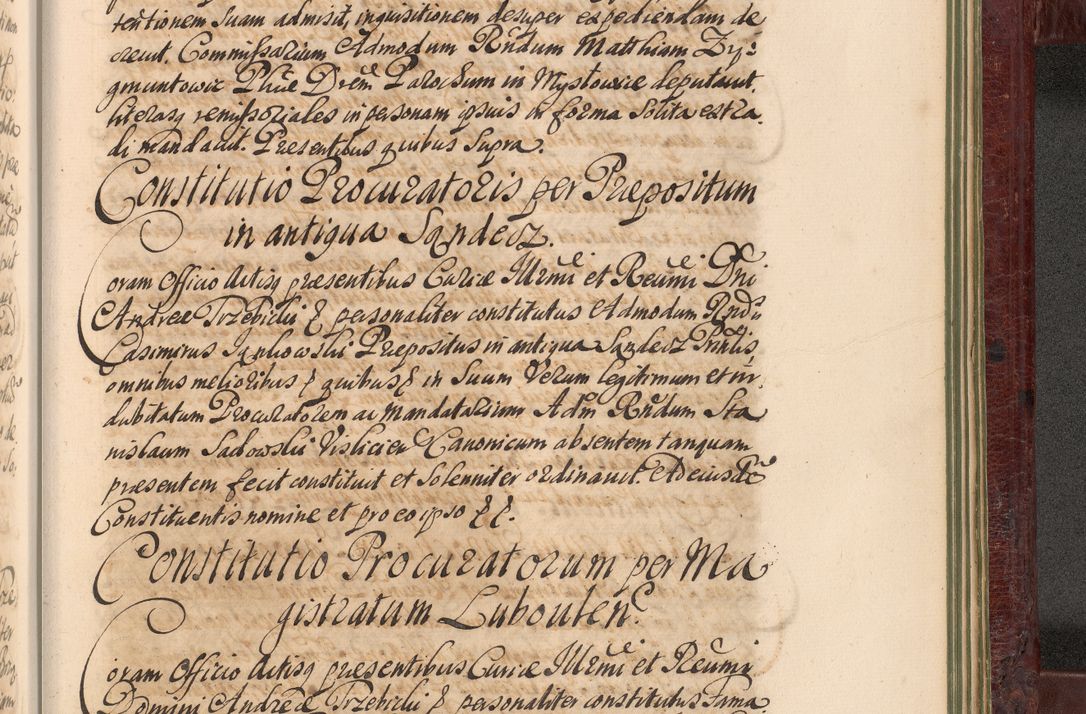 tentionem Suam admisit, inquisitionem desuper expediendam de
crevit, Commissarium Admodum Rndum Matthiam Zy-
gmuntowic Phiae Drem Parochum in Mystowice deputavit,
literasq remissoriales in personam ipsius in forma Solita extra,
di mandavit. Praesentibus quibus Supra.
Constitutio Procuratoris per Praepositum
in antiqua Sandecz.
Coram Officio Actisq praesentibus Curiae Illrmi et Reumi Dni
Andreae Trzebicki & personaliter constitutus Admodum Rndus
Casimirus Jankowski Praepositus in antiqua Sandecz Prntis,
omnibus melioribus & quibus & in Suum Verum legitimum et in,
dubitatum Procuratorem ac Mandatarium Adm Rndum Sta
nislaum Sadowski Vislicien Canonicum absentem tanquam
praesentem fecit constituit et Solenniter ordinavit. Ad eiusde
Constituentis nomine et pro eo ipso & &.
Constitutio Procuratorum per Ma
gistratum Lubovlen.
Coram Officio Actisq praesentibus Curiae Illrmi et Reumi
Domini Andreae Trzebicki & personaliter constitutus Fama